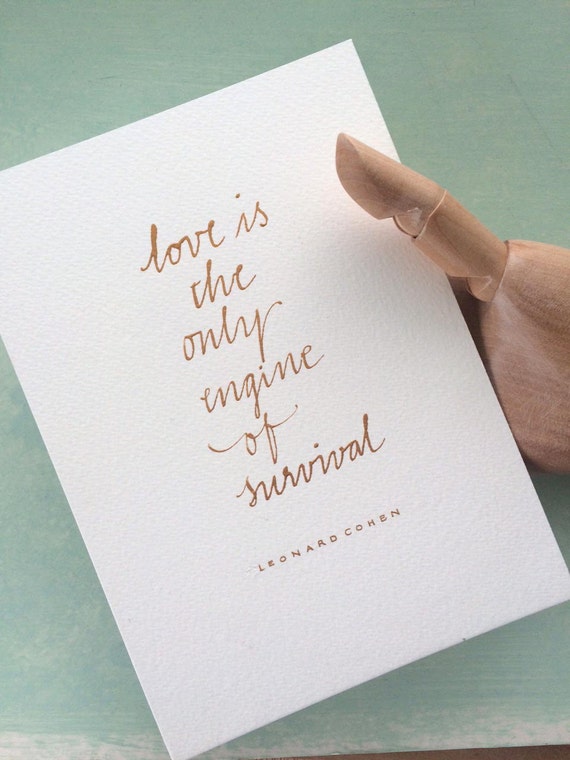 love is
the
only
engine
of
survival
LEONARD COHEN